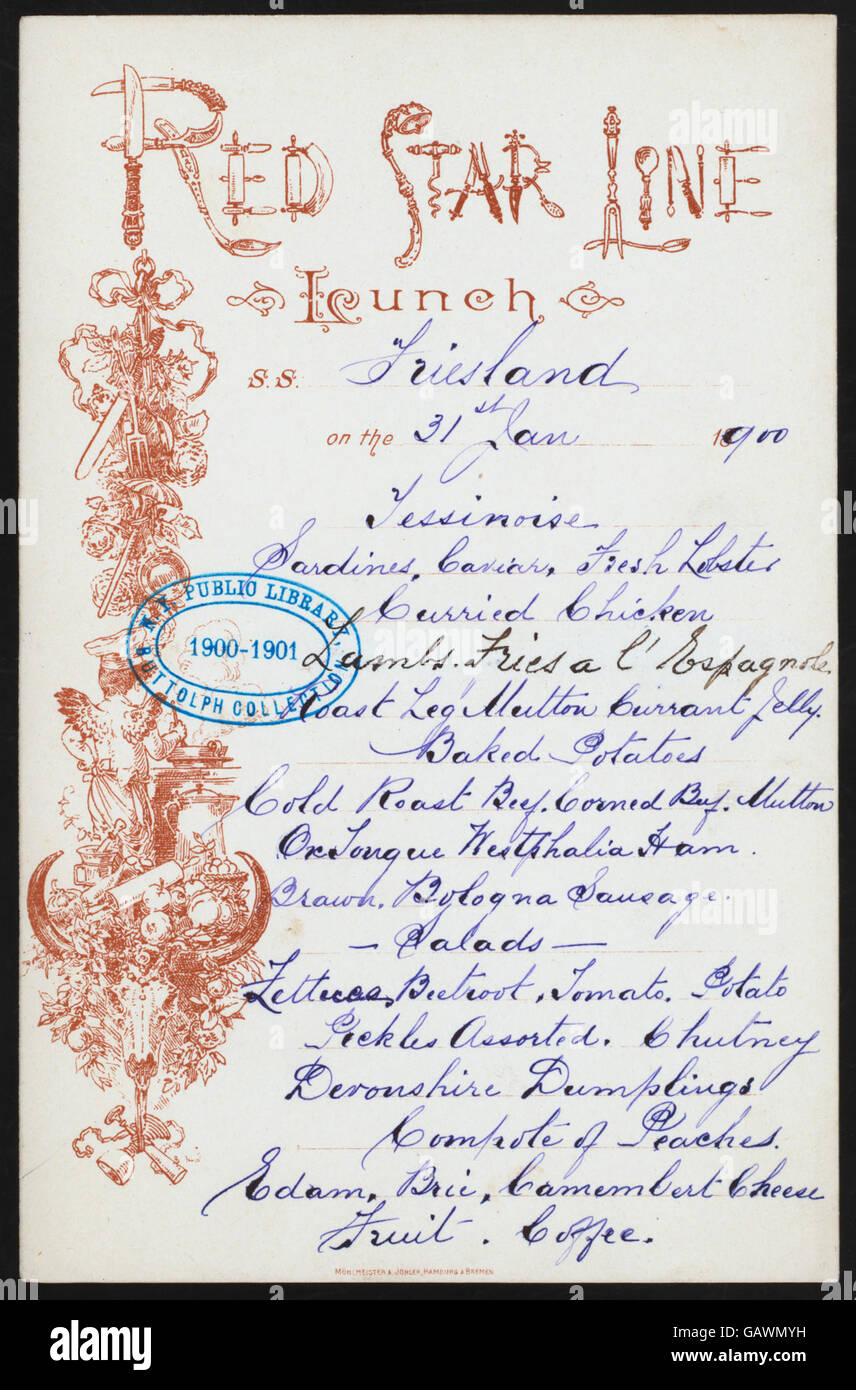 RED STAR LINE
Lunch
S.S. Friesland
on the 31st Jan 1900
Tessinoise
Sardines, Caviar, Fresh Lobster
Curried Chicken
Lambs. Fries a l' Espagnole
Roast Leg Mutton Currant Jelly.
Baked Potatoes
Cold Roast Beef. Corned Beef. Mutton
Ox Tongue Westphalia Ham.
Brawn. Bologna Sausage.
— Salads —
Lettuces, Beetroot, Tomato. Potato
Peckles Assorted. Chutney
Devonshire Dumplings
Compote of Peaches.
Edam, Brie, Camembert Cheese
Fruit. Coffee.
MÜHLMEISTER & JOHLER, HAMBURG & BREMEN
N.Y. PUBLIC LIBRARY,
1900-1901
BUTTOLPH COLLECTION
alamy
alamy
alamy
alamy
Image ID: GAWMYH
www.alamy.com